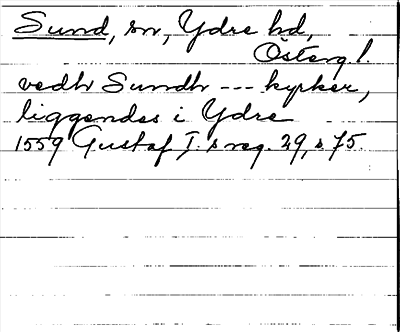 Sund, sn, Ydre hd,
Österg l.
vedh Sundh --- kyrker,
liggendes i Ydre
1559 Gustaf I. s reg. 29, s 75.